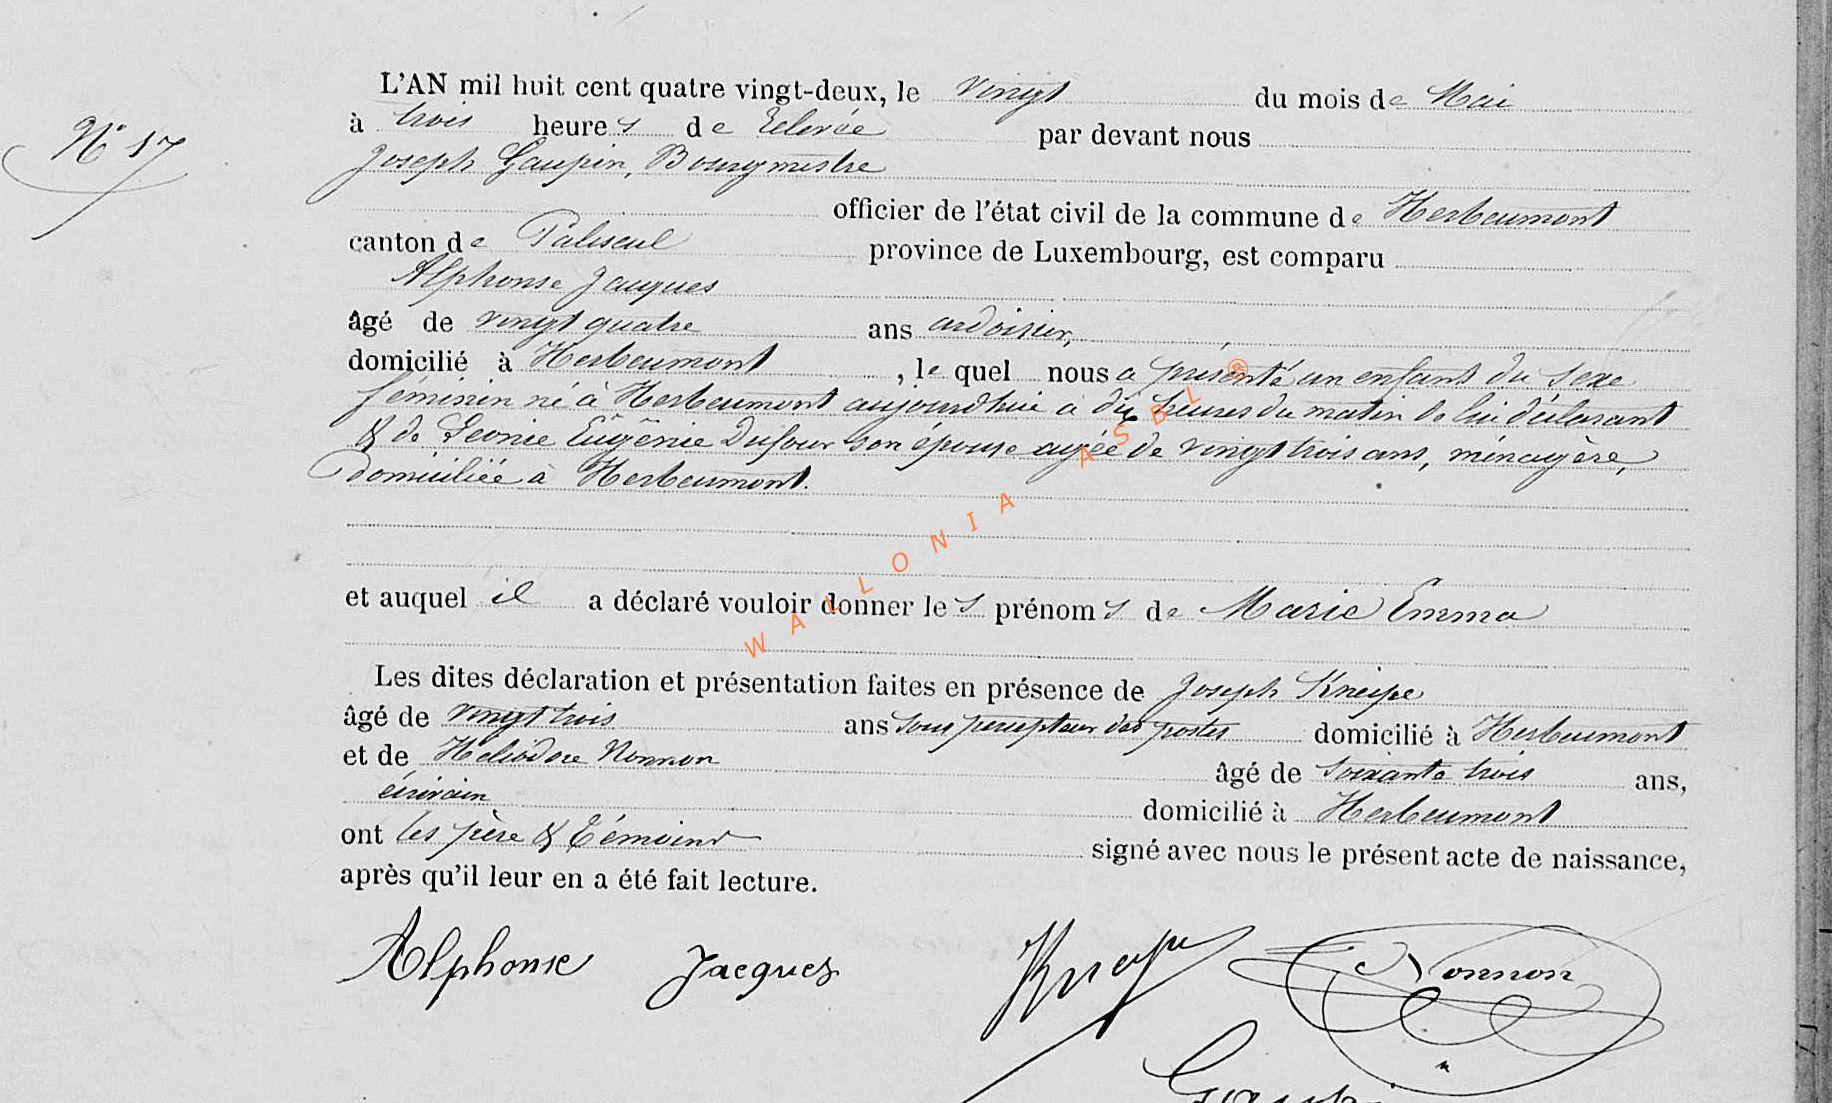 N° 17
L'AN mil huit cent quatre vingt-deux, le vingt du mois de Mai
à trois heures de Relevée par devant nous
Joseph Gaupin, Bourgmestre
officier de l'état civil de la commune de Herbeumont
canton de Paliseul province de Luxembourg, est comparu
Alphonse Jacques
âgé de vingt quatre ans ardoisier,
domicilié à Herbeumont, le quel nous a présenté un enfant du sexe
féminin né à Herbeumont aujourdhui à dix heures du matin de lui déclarant
& de Leonie Eugènie Dufour son épouse agée de vingt trois ans, ménagère,
domiciliée à Herbeumont.
et auquel il a déclaré vouloir donner les prénoms de Marie Emma
Les dites déclaration et présentation faites en présence de Joseph Kneipe
âgé de vingt trois ans sous percepteur des postes domicilié à Herbeumont
et de Héliodore Nonnon âgé de soixante trois ans,
écrivain domicilié à Herbeumont
ont les père & témoins signé avec nous le présent acte de naissance,
après qu'il leur en a été fait lecture.
Alphonse Jacques Nonnon
WALLONIA ASBL ®